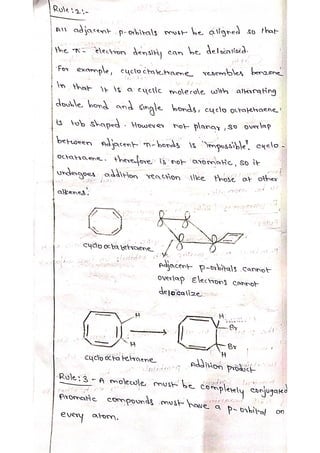 Rule:2:-
All adjacent p-orbitals must be aligned so that
the π- electron density can be delocalised.
For example, cyclooctatetraene resembles benzene
in that it is a cyclic molecule with alternating
double bond and single bonds, cyclo octatetraene
is tub shaped. However not planar, so overlap
between adjacent π-bonds is "impossible". cyclo-
octatraene. therefore is not aromatic, so it
undergoes addition reaction like those at other
alkenes.
cyclo octa tetraene
Adjacent p-orbitals cannot
overlap Electrons cannot
delocalize
H
H
H
Br
Br
H
cyclo octa tetraene
Addition product
Rule:3 - A molecule must be completely conjugated
Aromatic compounds must have a p-orbital on
every atom.